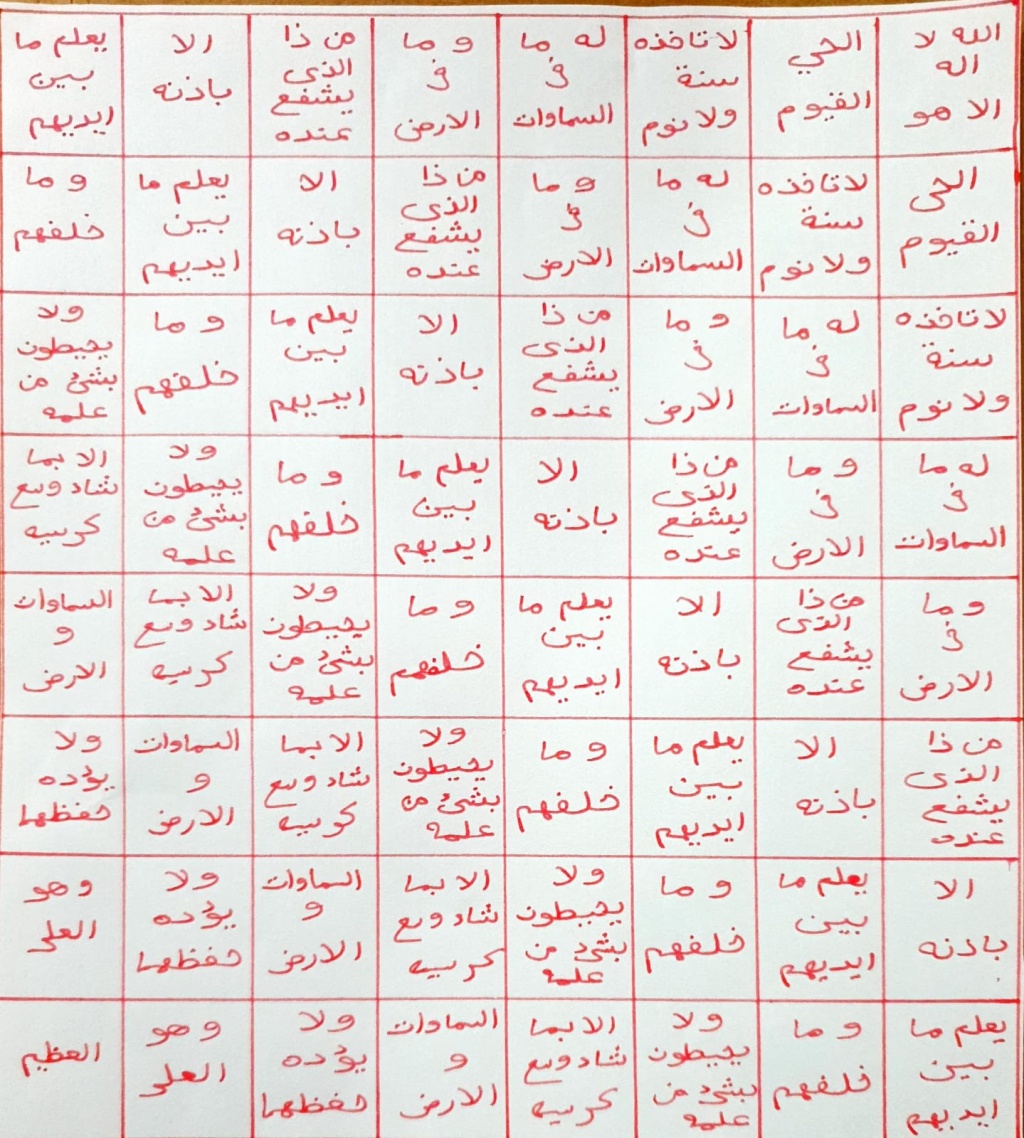 الله لا
اله
الا هو
الحي
القيوم
لا تاخذه
سنة
ولا نوم
له ما
في
السماوات
و ما
في
الارض
من ذا
الذى
يشفع
عنده
الا
باذنه
يعلم ما
بين
ايديهم
الحى
القيوم
لا تاخذه
سنة
ولا نوم
له ما
في
السماوات
و ما
في
الارض
من ذا
الذى
يشفع
عنده
الا
باذنه
يعلم ما
بين
ايديهم
و ما
خلفهم
لا تاخذه
سنة
ولا نوم
له ما
في
السماوات
و ما
في
الارض
من ذا
الذى
يشفع
عنده
الا
باذنه
يعلم ما
بين
ايديهم
و ما
خلفهم
ولا
يحيطون
بشئ من
علمه
له ما
في
السماوات
و ما
في
الارض
من ذا
الذى
يشفع
عنده
الا
باذنه
يعلم ما
بين
ايديهم
و ما
خلفهم
ولا
يحيطون
بشئ من
علمه
الا بما
شاء وسع
كرسيه
و ما
في
الارض
من ذا
الذى
يشفع
عنده
الا
باذنه
يعلم ما
بين
ايديهم
و ما
خلفهم
ولا
يحيطون
بشئ من
علمه
الا بما
شاء وسع
كرسيه
السماوات
و
الارض
من ذا
الذى
يشفع
عنده
الا
باذنه
يعلم ما
بين
ايديهم
و ما
خلفهم
ولا
يحيطون
بشئ من
علمه
الا بما
شاء وسع
كرسيه
السماوات
و
الارض
ولا
يؤده
حفظهما
الا
باذنه
يعلم ما
بين
ايديهم
و ما
خلفهم
ولا
يحيطون
بشئ من
علمه
الا بما
شاء وسع
كرسيه
السماوات
و
الارض
ولا
يؤده
حفظهما
وهو
العلى
يعلم ما
بين
ايديهم
و ما
خلفهم
ولا
يحيطون
بشئ من
علمه
الا بما
شاء وسع
كرسيه
السماوات
و
الارض
ولا
يؤده
حفظهما
وهو
العلى
العظيم